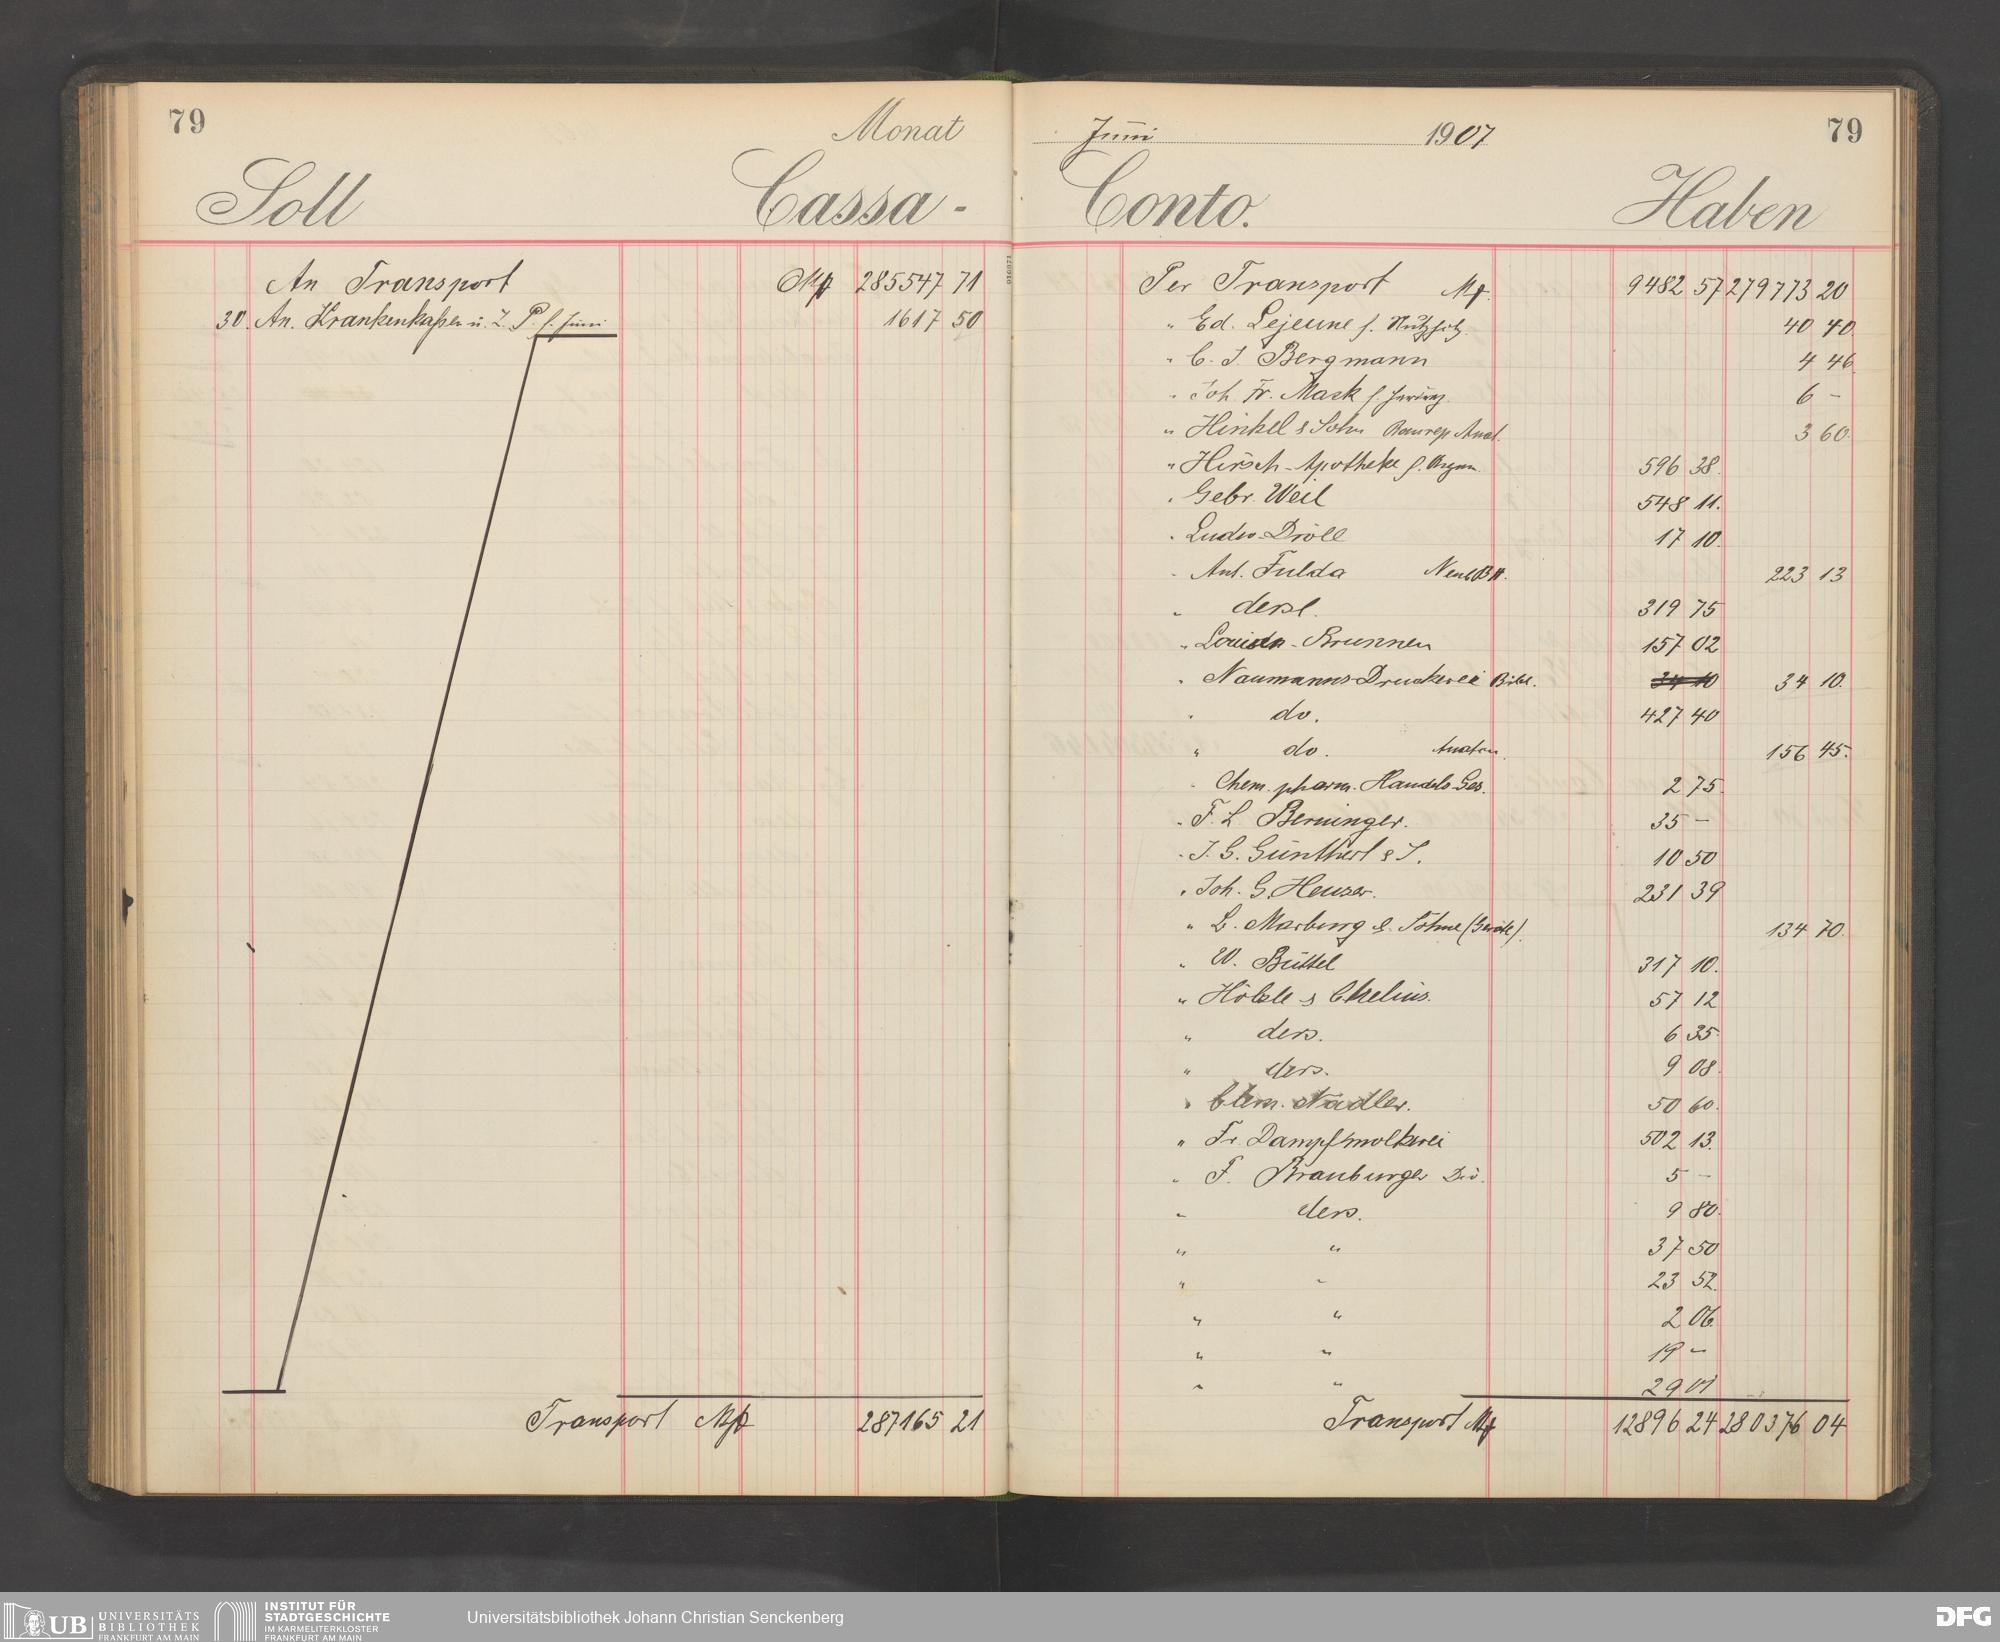 79
Monat
Soll
Cassa-
An Transport M 285547 71
30. An Krankenkaßen u. Z. P. f. Juni 1617 50
Transport M 287165 21
Juni 1907 79
Conto. Haben
Per Transport M. 9482 57 279773 20
" Ed. Lejeune f. Nutzholz. 40 40
" C. J. Bergmann 4 46
" Joh. Fr. Mack 6 –
" Hinkel & Sohn Anat. 3 60.
" Hirsch-Apotheke f. 596 38.
" Gebr. Weil 548 11.
" Ludw. Dröll 17 10.
" Ant. Fulda 223 13
" dersl. 319 75
" Louisen-Brunnen 157 02
" Naumanns-Druckerei Bibl. 34 10 34 10.
" do. 427 40
" do. Anatom. 156 45.
" Chem. pharm. Handels-Ges. 2 75.
" F. L. Berninger. 35 –
" J. G. Günthert & S. 10 50
" Joh. G. Heuser. 231 39
" L. Marburg & Söhne (Geräte). 134 70.
" W. Büttel 317 10.
" Hölzle & Chelius. 57 12
" ders. 6 35.
" ders. 9 08.
" Clem. Nadler. 50 60.
" Fr. Dampfmolkerei 502 13.
" F. Brauburger Div. 5 –
" ders. 9 80.
" " 37 50
" " 23 52.
" " 2 06.
" " 19 –
" " 29 01
Transport M 12896 24 280376 04
UB UNIVERSITÄTS
BIBLIOTHEK
FRANKFURT AM MAIN
INSTITUT FÜR
STADTGESCHICHTE
IM KARMELITERKLOSTER
FRANKFURT AM MAIN
Universitätsbibliothek Johann Christian Senckenberg
DFG